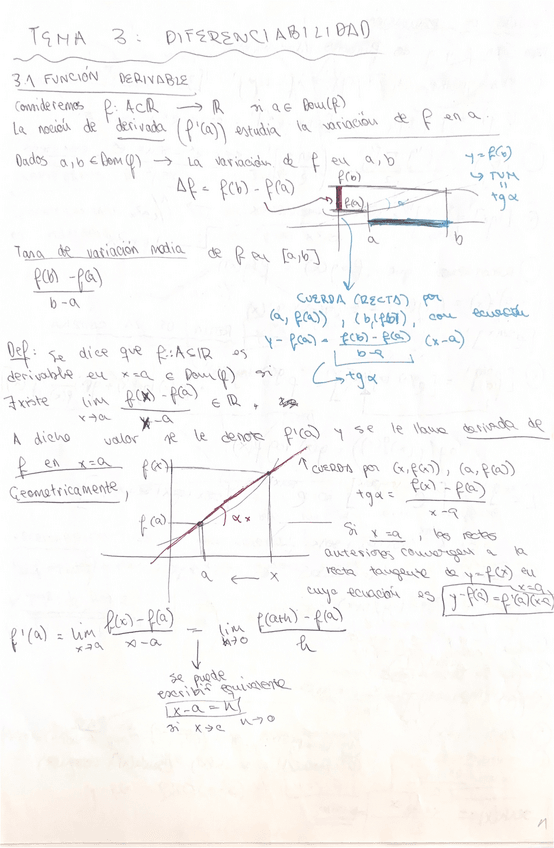 TEMA 3: DIFERENCIABILIDAD
3.1 FUNCIÓN DERIVABLE
Consideremos f: A⊂ℝ → ℝ si a ∈ Dom(f)
La noción de derivada (f'(a)) estudia la variación de f en a.
Dados a,b ∈ Dom(f) → La variación de f en a,b
Δf = f(b) - f(a)
f(b)
f(a)
α
a
b
y = f(b)
↳ TVM
=
tg α
Tasa de variación media de f en [a,b]
f(b) - f(a)
b - a
CUERDA (RECTA) por
(a, f(a)), (b, f(b)), con ecuación
y - f(a) = f(b) - f(a) (x-a)
b-a
↳ tg α
Def: Se dice que f: A⊂ℝ es
derivable en x=a ∈ Dom(f) si
∃existe lim x→a f(x) - f(a) ∈ ℝ.
x-a
A dicho valor se le denota f'(a) y se le llama derivada de
f en x=a
Geometricamente,
f(x)
f(a)
αx
a ← x
↑ CUERDA por (x, f(x)), (a, f(a))
tg α = f(x) - f(a)
x-a
Si x=a, las rectas
anteriores convergen a la
recta tangente de y=f(x) en x=a
cuya ecuación es y-f(a) = f'(a)(x-a)
f'(a) = lim x→a f(x) - f(a) = lim h→0 f(a+h) - f(a)
x-a h
se puede
escribir equivalente
x-a = h
si x→a h→0
1